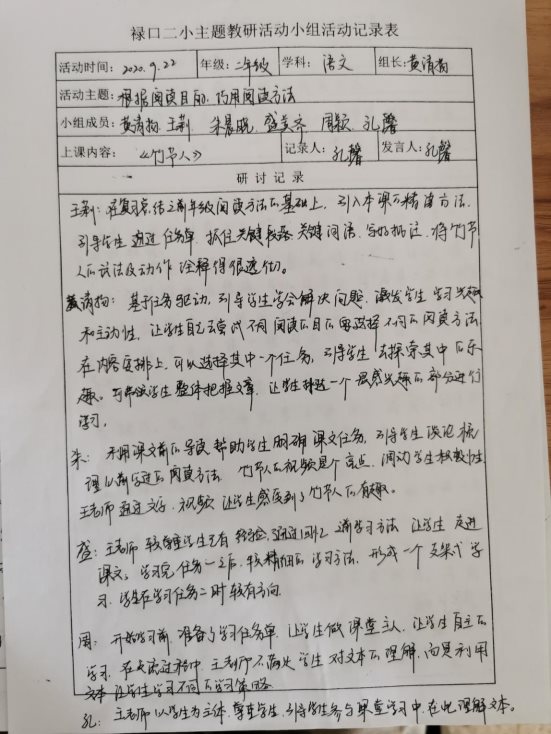 禄口二小主题教研活动小组活动记录表
活动时间：2020.9.22 年级：二年级 学科：语文 组长：黄清梅
活动主题：根据阅读目的，巧用阅读方法
小组成员：黄清梅 王莉 朱晨晓 盛美齐 周颖 孔馨
上课内容：《竹节人》 记录人：孔馨 发言人：孔馨
研讨记录
王莉：在复习总结之前年级阅读方法的基础上，引入本课的精读方法，
引导学生通过任务单，抓住关键段落、关键词语，写好批注，将竹节
人的玩法及动作诠释得很透彻。
黄清梅：基于任务驱动，引导学生学会解决问题，激发学生学习兴趣
和主动性，让学生自己去尝试不同阅读的目的要选择不同的阅读方法，
在内容安排上，可以选择其中一个任务，引导学生去探索其中的乐
趣。可带领学生整体把握文章，让学生挑选一个最感兴趣的部分进行
学习。
朱：利用课文前的导读帮助学生明确课文任务，引导学生谈论梳
理以前学过的阅读方法。竹节人的视频是个亮点，调动学生积极性
王老师通过文字、视频让学生感受到了竹节人的有趣。
盛：王老师较尊重学生已有经验，通过回忆之前学习方法，让学生走进
课文。学习完任务一之后，较精细的学习方法，形成一个支架式学
习，学生在学习任务二时较有方向。
周：开始学习前，准备了学习任务单，让学生做课堂主人，让学生自主的
学习。在交流过程中，王老师不满足学生对文本的理解，而是利用
文本让学生学习不同的学习策略。
孔：王老师以学生为主体，尊重学生，引导学生参与课堂学习中，在此理解文本。